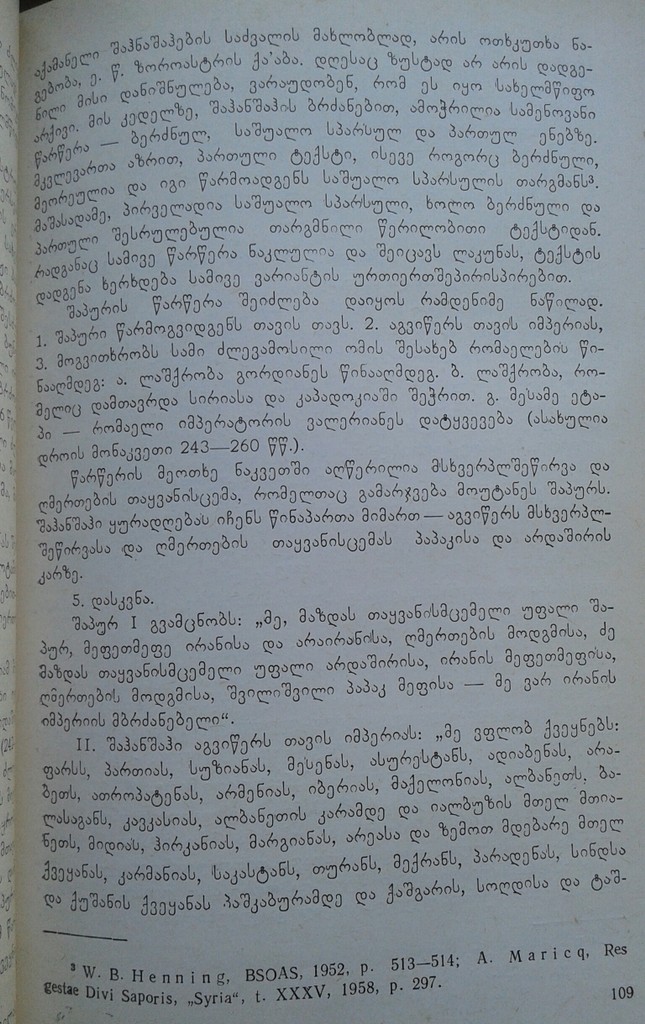 აქამანელი შაჰნაშაჰების საძვალის მახლობლად, არის ოთხკუთხა ნა-
გებობა, ე. წ. ზოროასტრის ქა'აბა. დღესაც ზუსტად არ არის დადგე-
ნილი მისი დანიშნულება, ვარაუდობენ, რომ ეს იყო სახელმწიფო
არქივი. მის კედელზე, შაჰანშაჰის ბრძანებით, ამოჭრილია სამენოვანი
წარწერა — ბერძნულ, საშუალო სპარსულ და პართულ ენებზე.
მკვლევართა აზრით, პართული ტექსტი, ისევე როგორც ბერძნული,
მეორეულია და იგი წარმოადგენს საშუალო სპარსულის თარგმანს³.
მაშასადამე, პირველადია საშუალო სპარსული, ხოლო ბერძნული და
პართული შესრულებულია თარგმნილი წერილობითი ტექსტიდან.
რადგანაც სამივე წარწერა ნაკლულია და შეიცავს ლაკუნას, ტექსტის
დადგენა ხერხდება სამივე ვარიანტის ურთიერთშეპირისპირებით.
შაპურის წარწერა შეიძლება დაიყოს რამდენიმე ნაწილად.
1. შაპური წარმოგვიდგენს თავის თავს. 2. აგვიწერს თავის იმპერიას,
3. მოგვითხრობს სამი ძლევამოსილი ომის შესახებ რომაელების წი-
ნააღმდეგ: ა. ლაშქრობა გორდიანეს წინააღმდეგ. ბ. ლაშქრობა, რო-
მელიც დამთავრდა სირიასა და კაპადოკიაში შეჭრით. გ. მესამე ეტა-
პი — რომაელი იმპერატორის ვალერიანეს დატყვევება (ასახულია
დროის მონაკვეთი 243—260 წწ.).
წარწერის მეოთხე ნაკვეთში აღწერილია მსხვერპლშეწირვა და
ღმერთების თაყვანისცემა, რომელთაც გამარჯვება მოუტანეს შაპურს.
შაჰანშაჰი ყურადღებას იჩენს წინაპართა მიმართ — აგვიწერს მსხვერპლ-
შეწირვასა და ღმერთების თაყვანისცემას პაპაკისა და არდაშირის
კარზე.
5. დასკვნა.
შაპურ I გვამცნობს: „მე, მაზდას თაყვანისმცემელი უფალი შა-
პურ, მეფეთმეფე ირანისა და არაირანისა, ღმერთების მოდგმისა, ძე
მაზდას თაყვანისმცემელი უფალი არდაშირისა, ირანის მეფეთმეფისა,
ღმერთების მოდგმისა, შვილიშვილი პაპაკ მეფისა — მე ვარ ირანის
იმპერიის მბრძანებელი“.
II. შაჰანშაჰი აგვიწერს თავის იმპერიას: „მე ვფლობ ქვეყნებს:
ფარსს, პართიას, სუზიანას, მესენას, ასურესტანს, ადიაბენას, არა-
ბეთს, ათროპატენას, არმენიას, იბერიას, მაქელონიას, ალბანეთს, ბა-
ლასაგანს, კავკასიას, ალბანეთის კარამდე და იალბუზის მთელ მთია-
ნეთს, მიდიას, ჰირკანიას, მარგიანას, არეასა და ზემოთ მდებარე მთელ
ქვეყანას, კარმანიას, საკასტანს, თურანს, მექრანს, პარადენას, სინდსა
და ქუშანის ქვეყანას პაშკაბურამდე და ქაშგარის, სოღდისა და ტაშ-
³ W. B. Henning, BSOAS, 1952, p. 513—514; A. Maricq, Res
gestae Divi Saporis, „Syria“, t. XXXV, 1958, p. 297.
109